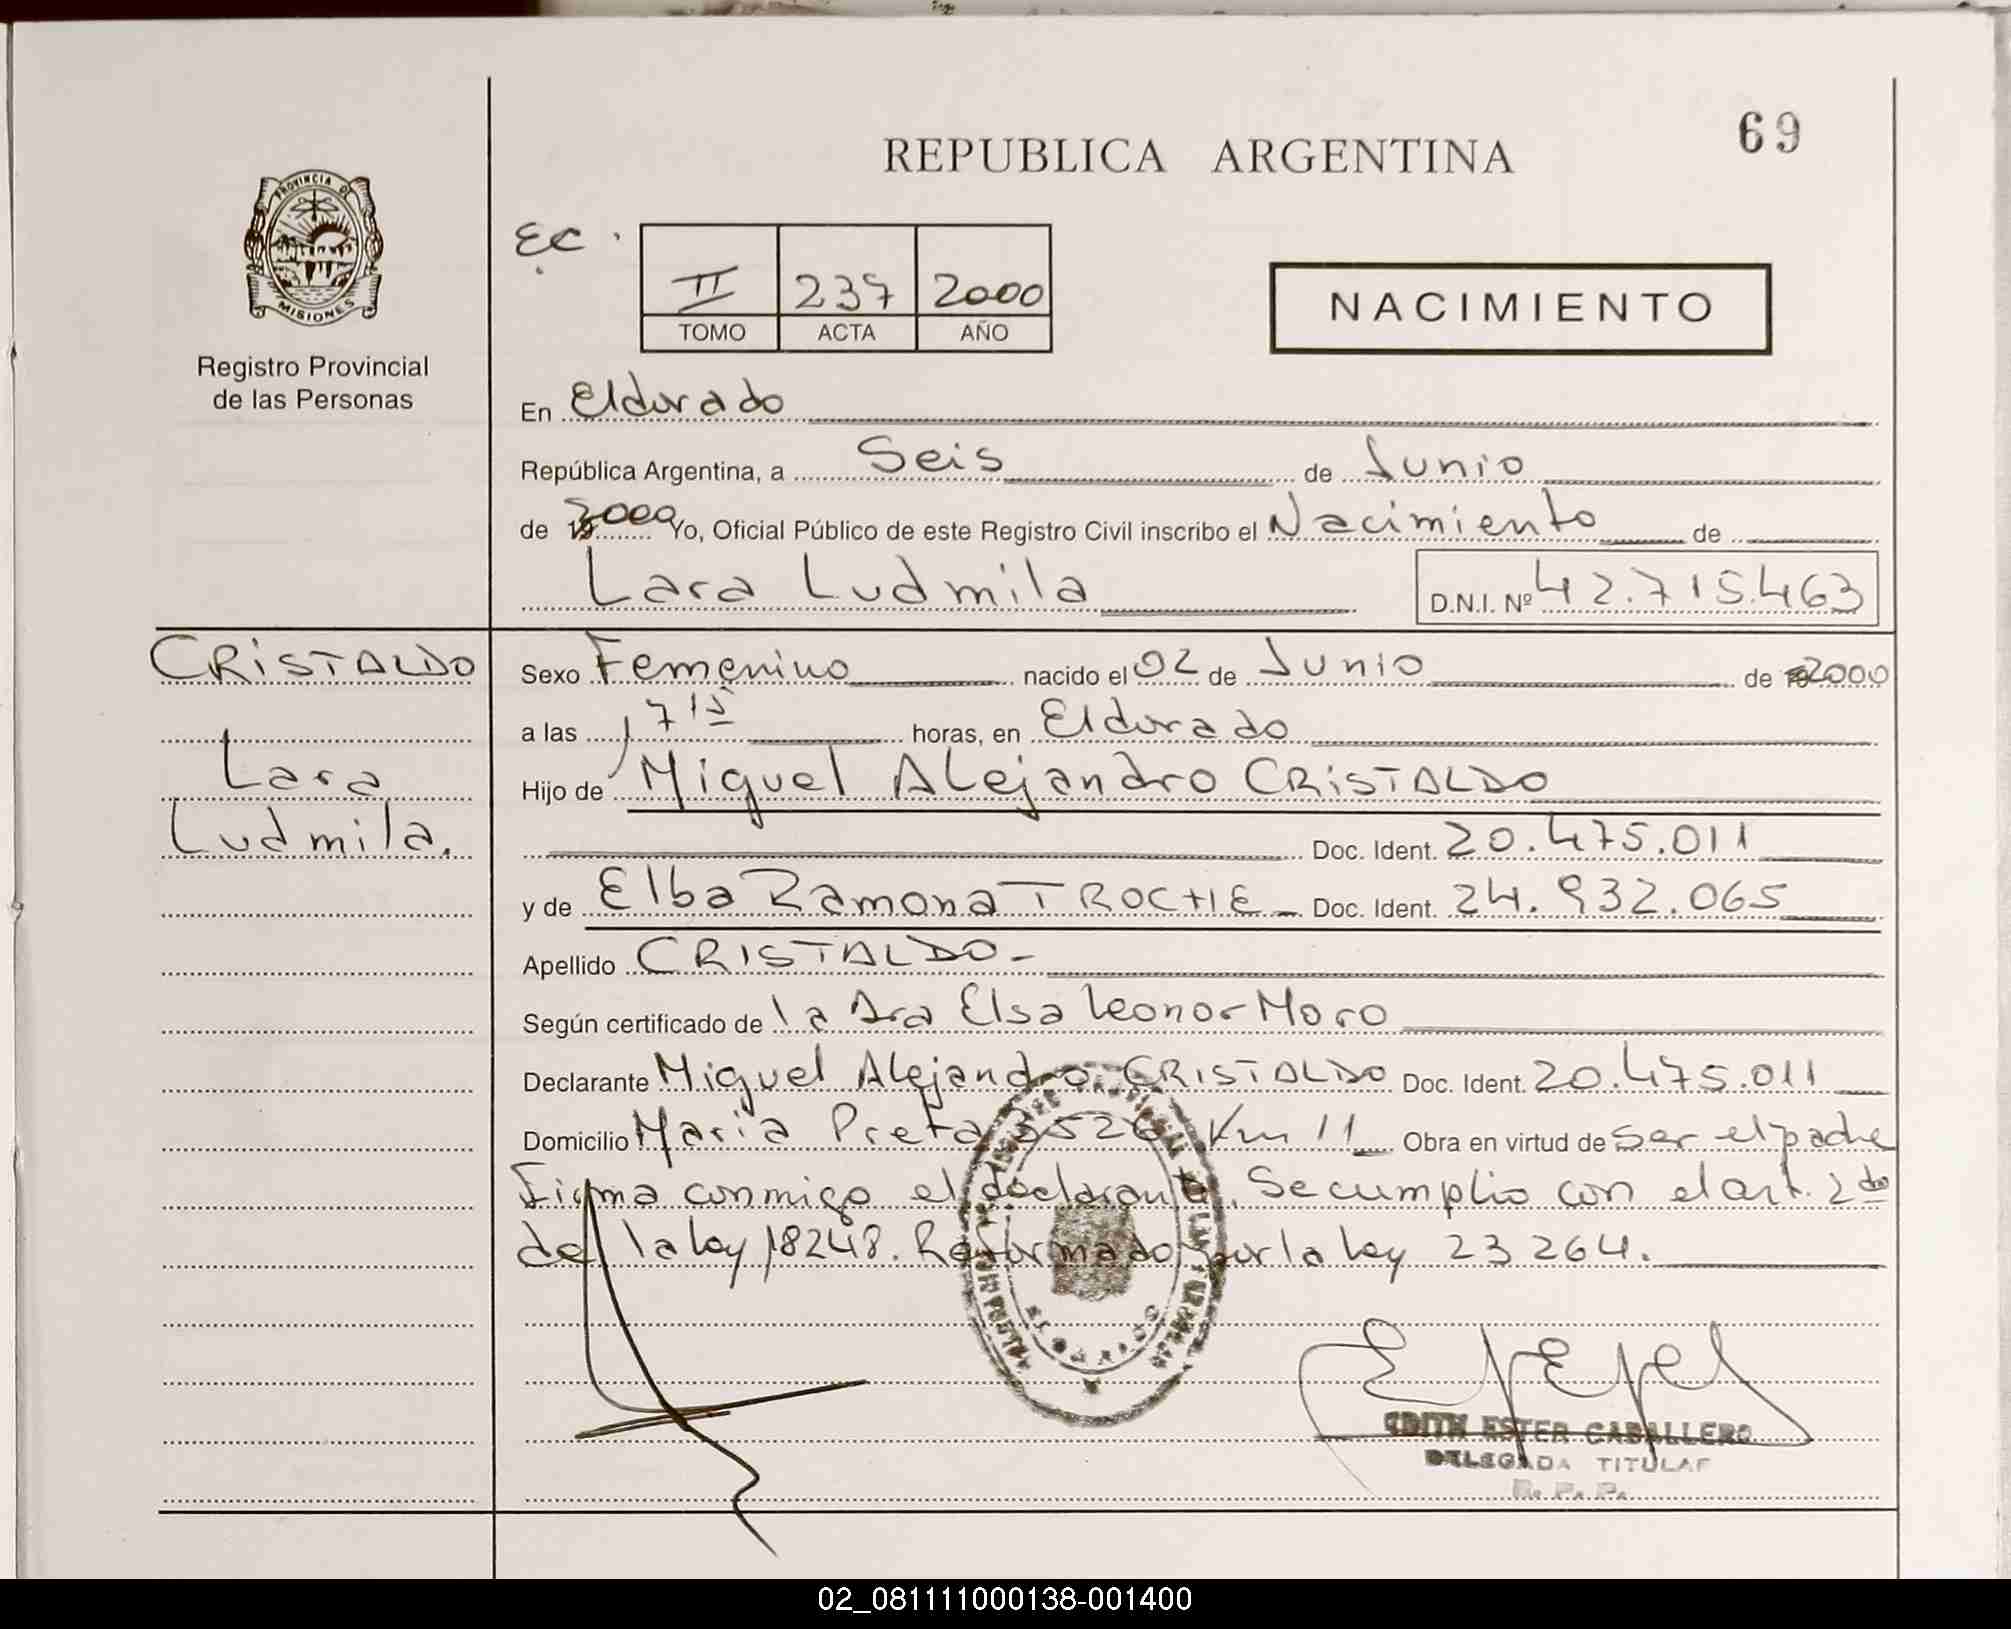 69
REPUBLICA ARGENTINA
PROVINCIA DE
MISIONES
Registro Provincial
de las Personas
EC.
II 237 2000
TOMO ACTA AÑO
NACIMIENTO
En Eldorado
República Argentina, a Seis de Junio
de 2000 Yo, Oficial Público de este Registro Civil inscribo el Nacimiento de
Lara Ludmila D.N.I. Nº 42.715.463
CRISTALDO
Lara
Ludmila.
Sexo Femenino nacido el 02 de Junio de 2000
a las 17 15 horas, en Eldorado
Hijo de Miguel Alejandro CRISTALDO
Doc. Ident. 20.475.011
y de Elba Ramona TROCHE Doc. Ident. 24.932.065
Apellido CRISTALDO
Según certificado de la Dra Elsa Leonor Moro
Declarante Miguel Alejandro CRISTALDO Doc. Ident. 20.475.011
Domicilio Maria Preta 3526 Km 11 Obra en virtud de ser el padre
Firma conmigo el declarante. Se cumplio con el art. 2do
de la ley 18248. Reformado por la ley 23264.
EDITH ESTER CABALLERO
DELEGADA TITULAR
R. P. P.
02_081111000138-001400